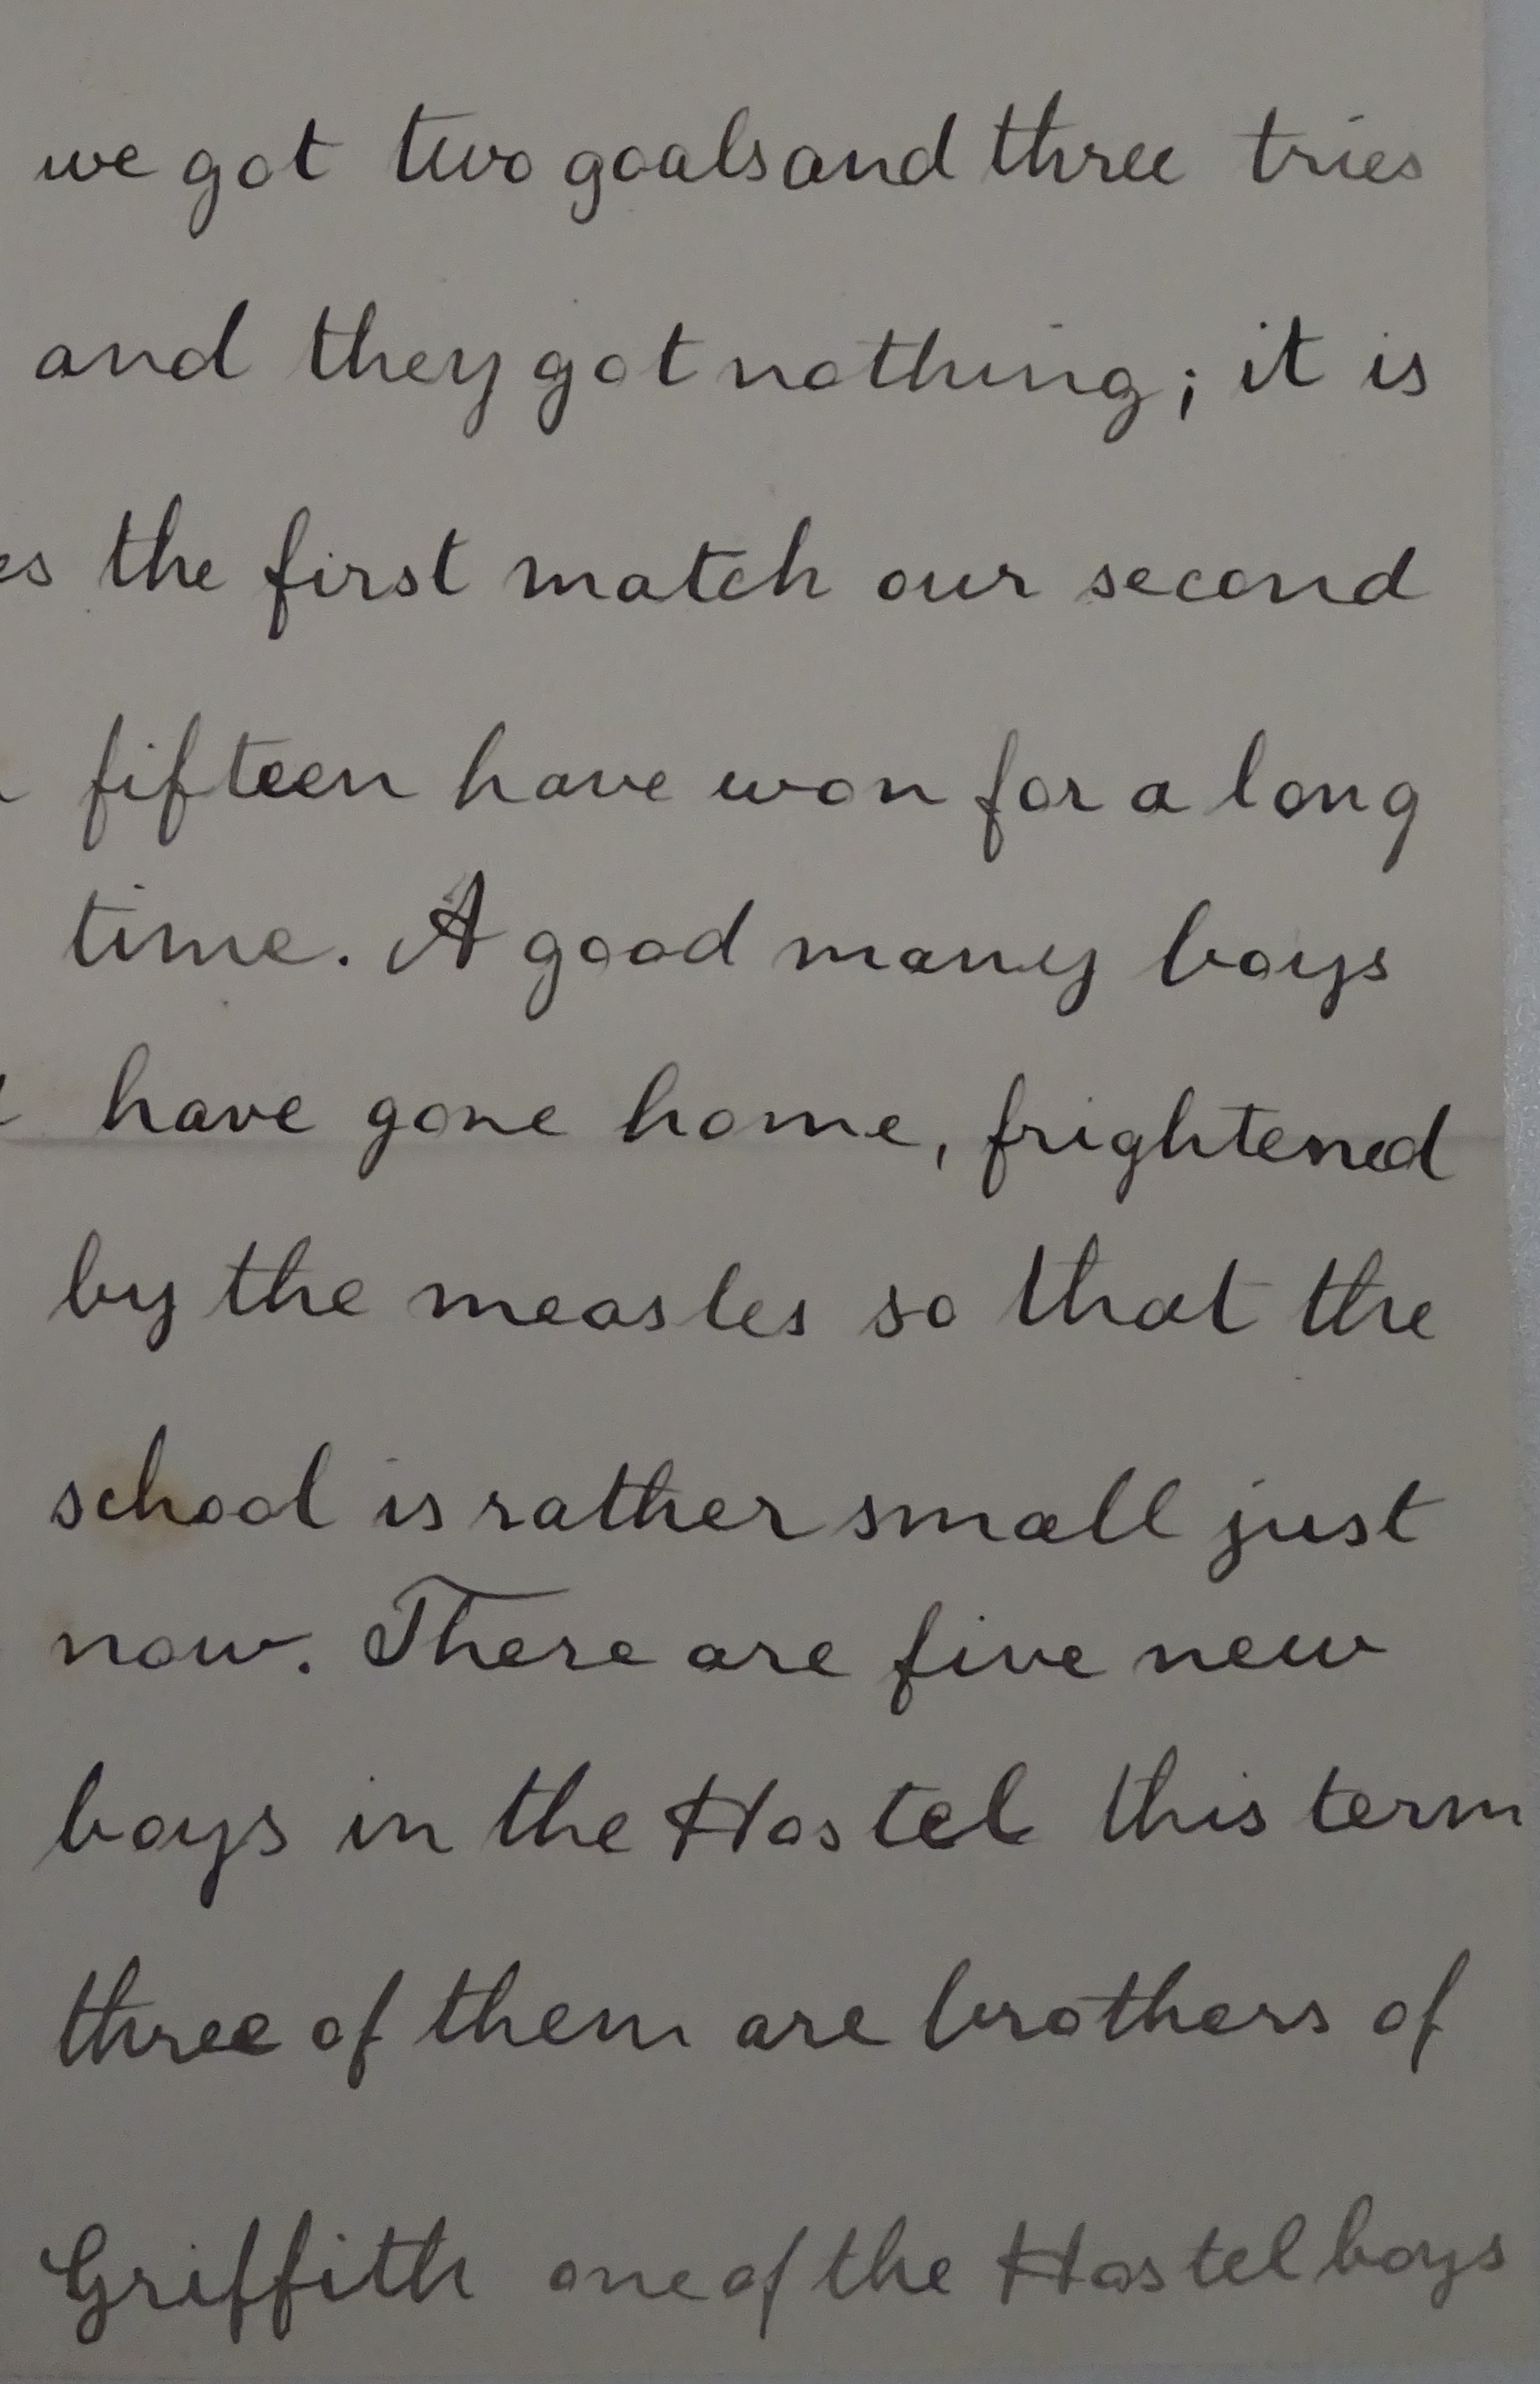 we got two goals and three tries
and they got nothing; it is
the first match our second
fifteen have won for a long
time. A good many boys
have gone home, frightened
by the measles so that the
school is rather small just
now. There are five new
boys in the Hostel this term
three of them are brothers of
Griffith one of the Hostel boys